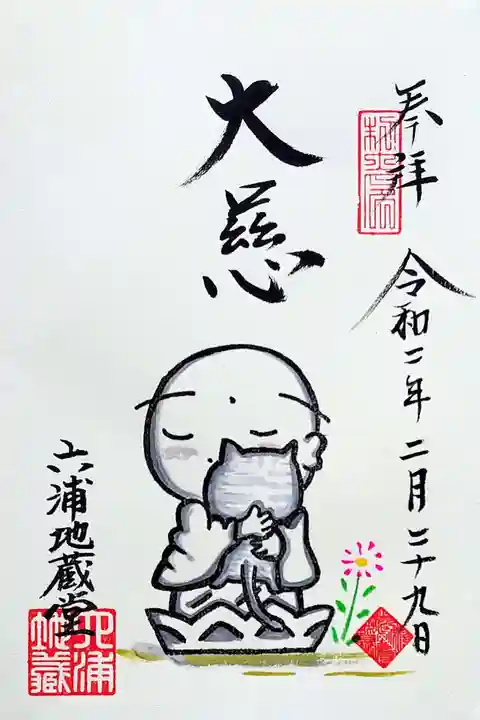 奉拝
令和二年二月二十九日
大慈
六浦地蔵堂
六浦
地蔵